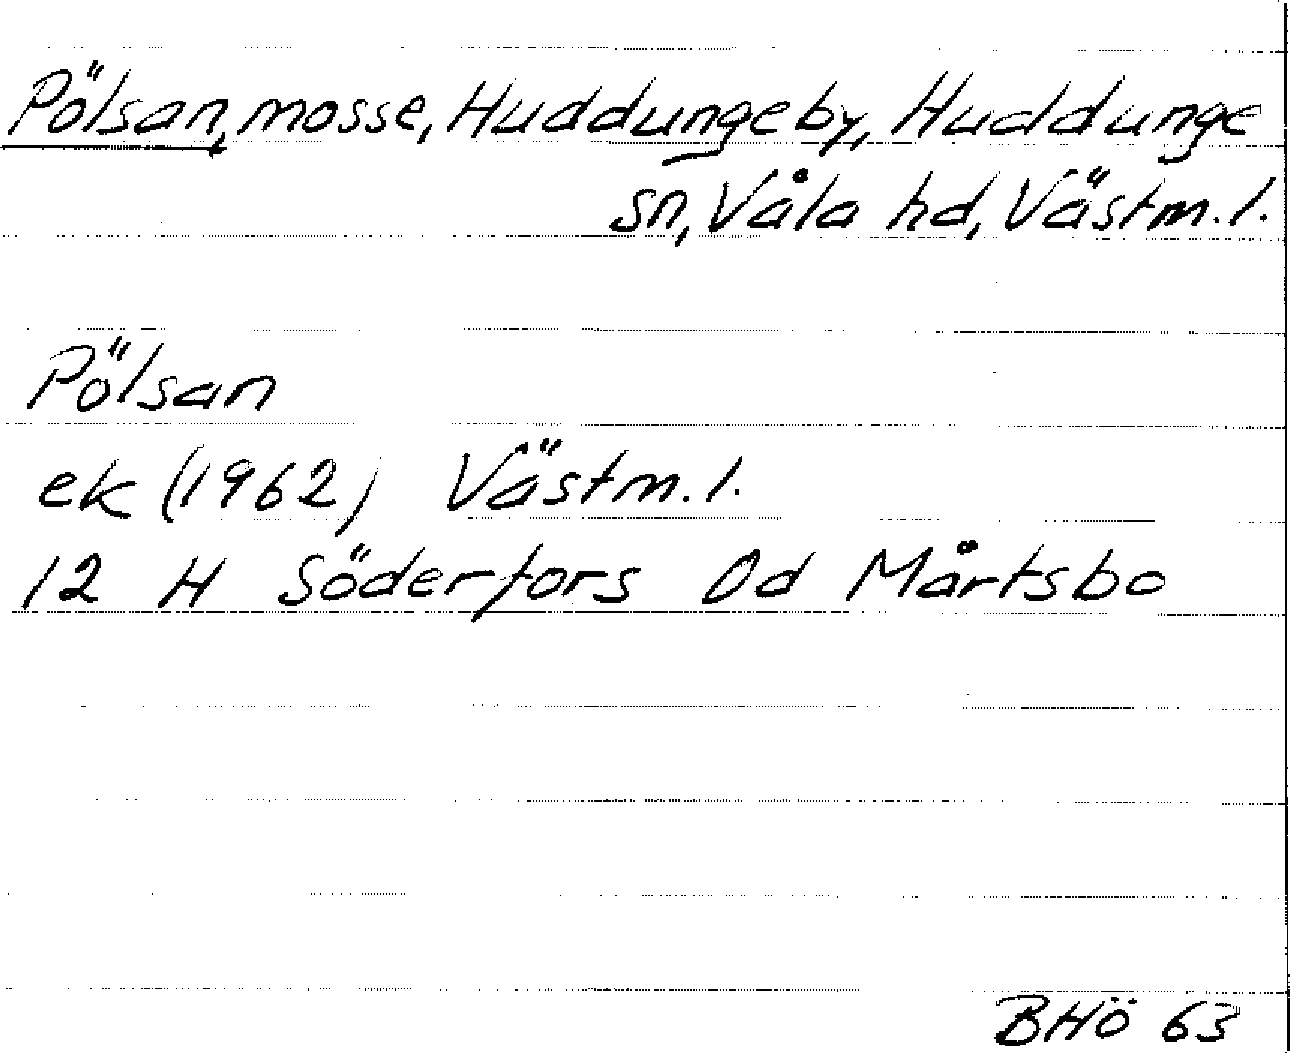 Pölsan, mosse, Huddungeby, Huddunge
sn, Våla hd, Västm. l.
Pölsan
ek (1962) Västm. l.
12 H Söderfors 0d Mårtsbo
BHö 63